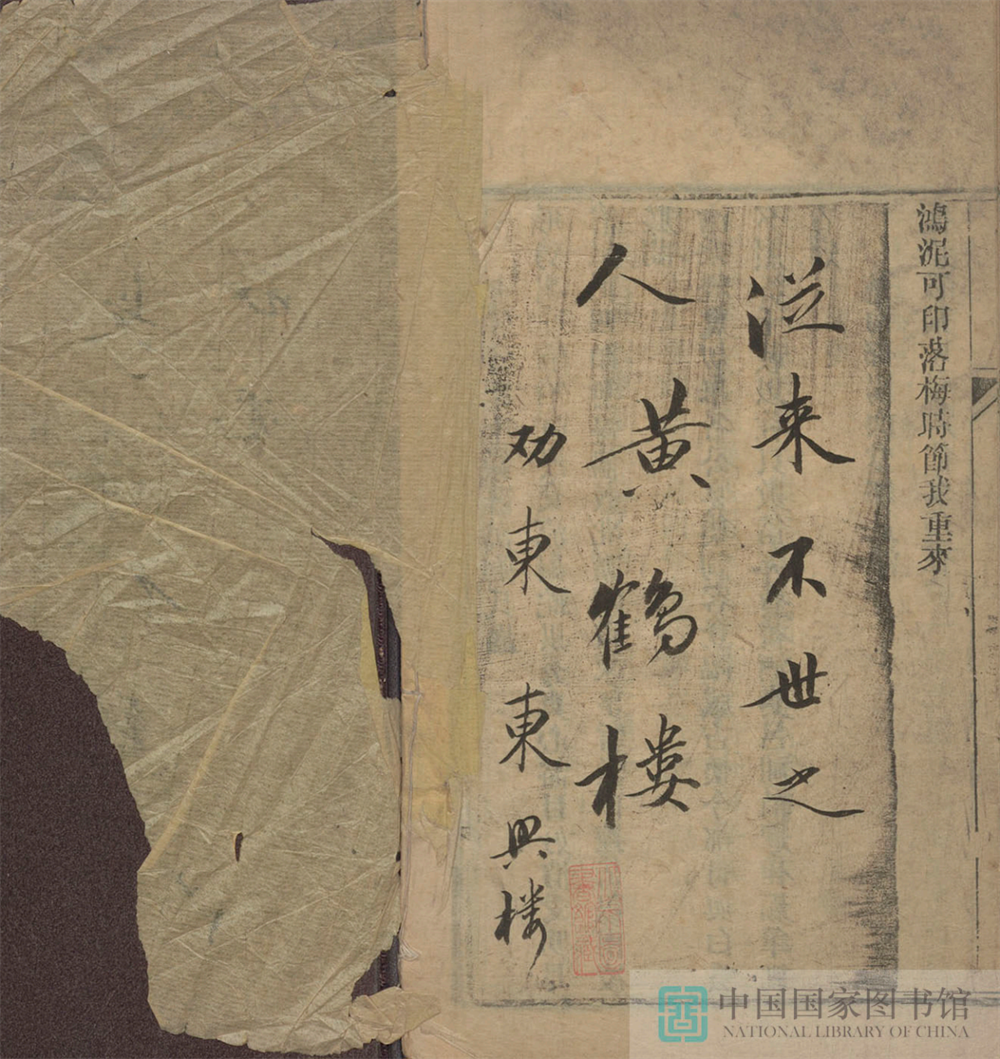 鴻泥可印落梅時節我重來
從来不世之
人黄鶴楼
劝東東興楼
中国国家图书馆
NATIONAL LIBRARY OF CHINA